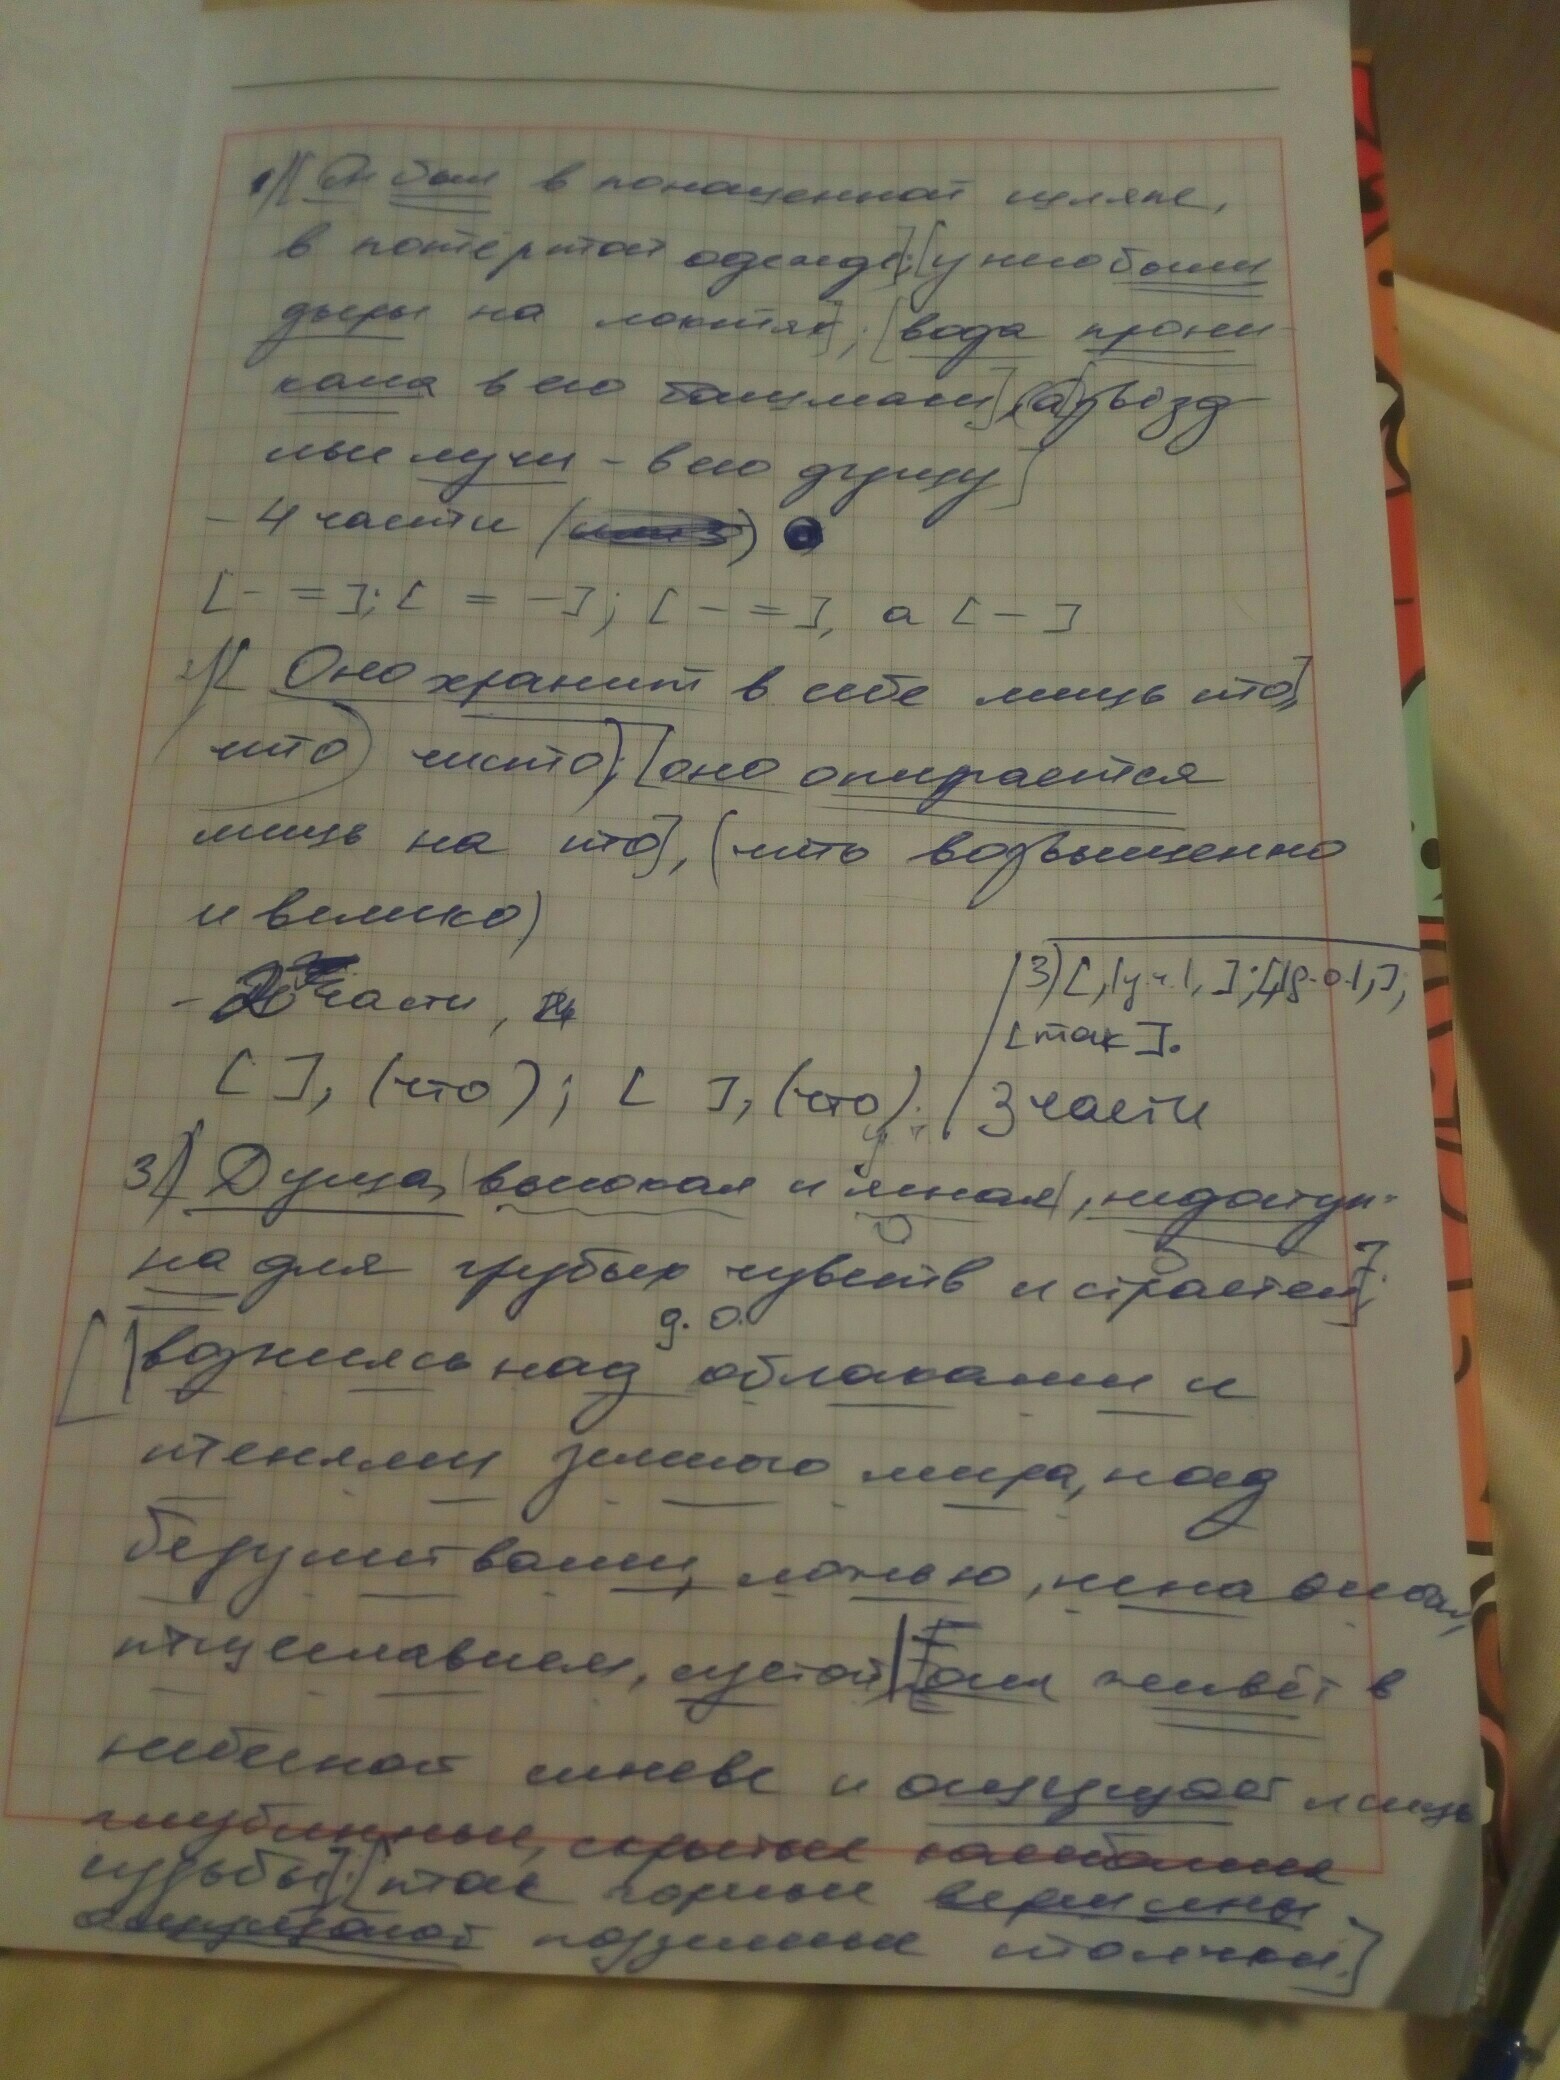 1) [Он был в поношенной шляпе,
в потёртой одежде]; [у него были
дыры на локтях]; [вода прони-
кала в его башмаки], (а) [звёзд-
ные лучи - в его душу]
- 4 части ( )
[- =]; [= -]; [- =], а [-]
2) [Оно хранит в себе лишь то],
(что) чисто); [оно опирается
лишь на то], (что возвышенно
и велико)
- части,
3) [, |у.ч.|, ]; [|д.о.|, ];
[так].
[ ], (что); [ ], (что).
3 части
у.ч.
3) [Душа, |высокая и ясная|, недоступ-
на для грубых чувств и страстей];
д.о.
[|вознясь над облаками и
тенями земного мира, над
безумствами, ложью, ненавистью,
тщеславием, суетой| она живёт в
небесной синеве и ощущает лишь
глубинные, скрытые колебания
судьбы]; [так горные вершины
ощущают подземные толчки.]